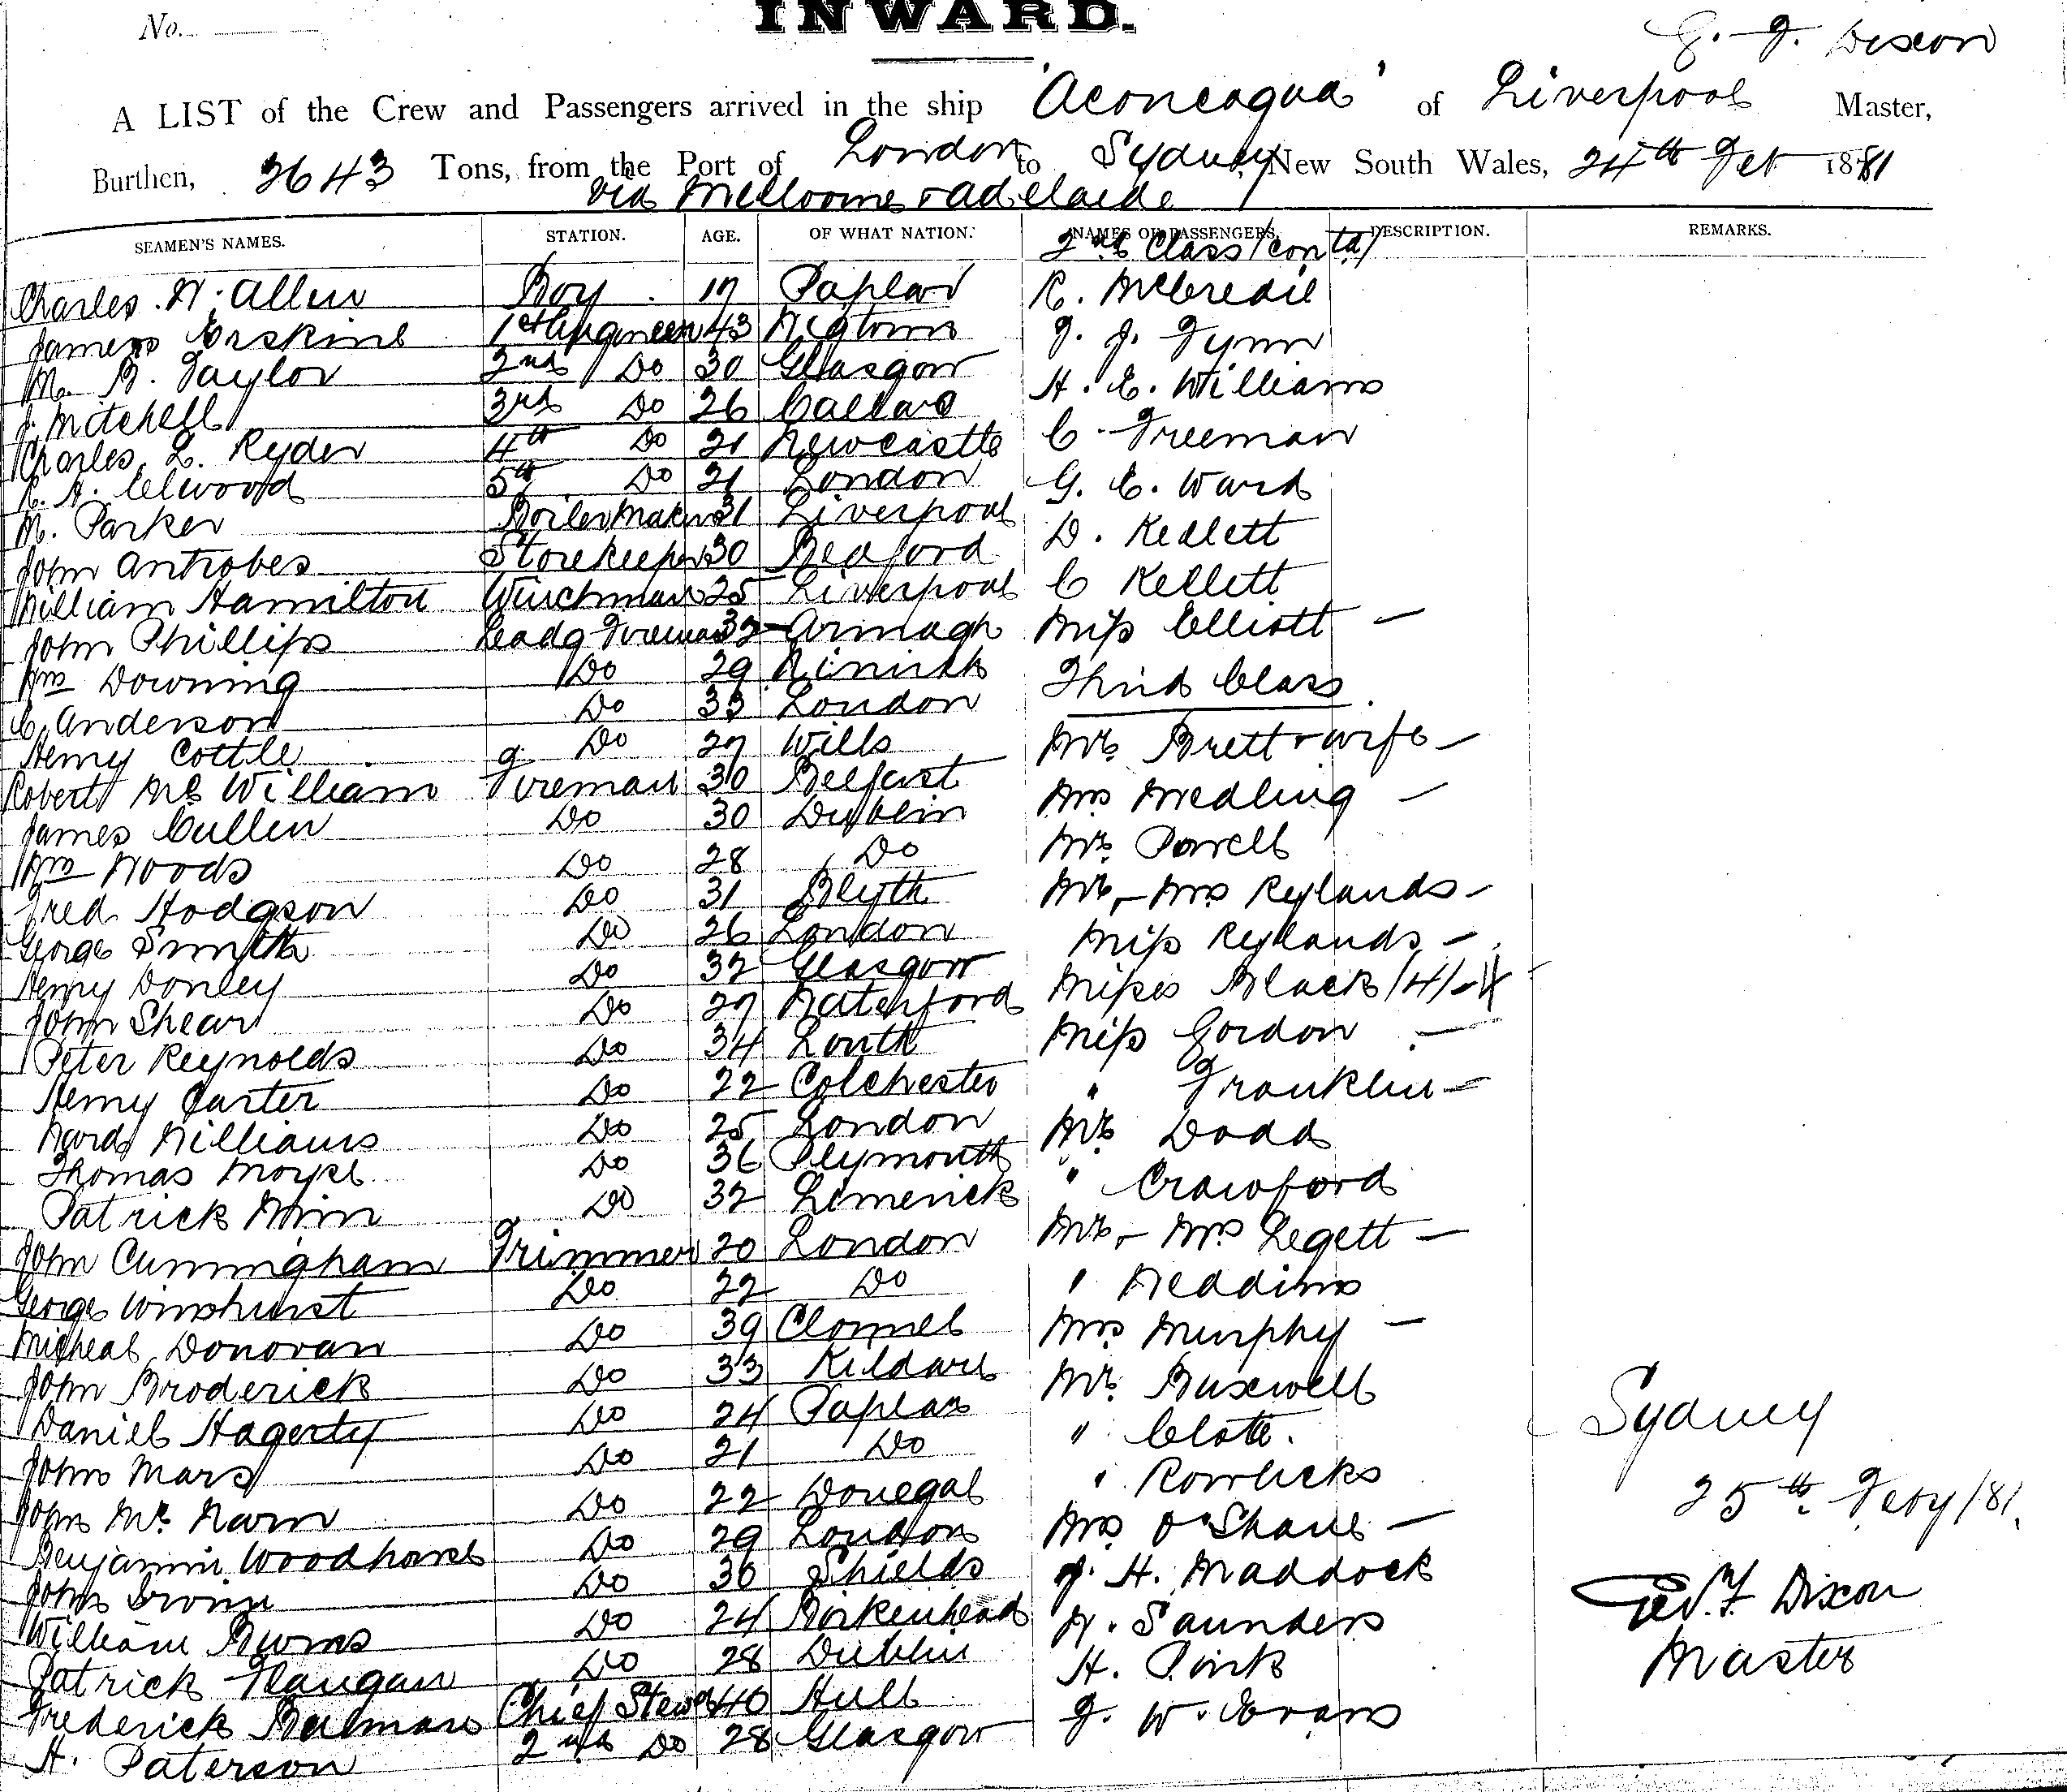 No.
INWARD.
G. F. Dixon
A LIST of the Crew and Passengers arrived in the ship 'Aconcagua' of Liverpool Master,
Burthen, 2643 Tons, from the Port of London to Sydney, New South Wales, 24th Feb 1881
via Melbourne & Adelaide
SEAMEN'S NAMES. STATION. AGE. OF WHAT NATION. NAMES OF PASSENGERS. DESCRIPTION. REMARKS.
2nd Class (contd)
Charles W. Allen Boy 17 Poplar R. McCredie
James Erskine 1st Engineer 43 Wigtown
M. R. Taylor 2nd Do 30 Glasgow H. E. Williams
J. Mitchell 3rd Do 26 Callao C. Freeman
Charles L. Ryder 4th Do 21 Newcastle G. E. Ward
Elwood 5th Do 21 London D. Kellett
M. Parker Boilermaker 31 Liverpool C Kellett
John Antrobes Storekeeper 30 Bedford Miss Elliott —
William Hamilton Winchman 25 Liverpool Third Class
John Phillips Leadg Fireman 32 Armagh Mr Brett & wife —
Wm Downing Do 29 Mrs Medling —
C. Anderson Do 33 London Mr. Powell
Henry Cottle Do 27 Wilts Mr & Mrs Rylands —
Robert McWilliam Fireman 30 Belfast Miss Rylands —
James Cullen Do 30 Dublin Misses Black (4) — 4
Wm Woods Do 28 Do Miss Gordon —
Fred Hodgson Do 31 Blyth " Franklin —
George Smith Do 26 London Mr Dodd
Henry Donley Do 32 Glasgow " Crawford
John Shear Do 27 Waterford Mr & Mrs Legett —
Peter Reynolds Do 34 Louth "
Henry Carter Do 22 Colchester Mrs Murphy —
Ward Williams Do 25 London Mr. Buxwell
Thomas Moyse Do 36 Plymouth " Clote.
Patrick Do 32 Limerick " Rowlicks
John Cunningham Trimmer 20 London Mrs O'Shane —
George Winshurst Do 22 Do J. H. Maddock
Micheal Donovan Do 39 Clonmel W. Saunders
John Broderick Do 33 Kildare H. Pink
Daniel Hagerty Do 24 Poplar J. W. Evans
John Mars Do 21 Do
John Mc Narn Do 22 Donegal
Benjamin Woodhouse Do 29 London
John Irvine Do 30 Shields
William Burns Do 24 Birkenhead
Patrick Flaugan Do 28 Dublin
Frederick Bulman Chief Stewd 40 Hull
H. Paterson 2nd Do 28 Glasgow
Sydney
25th Feby /81.
Geo. F. Dixon
Master